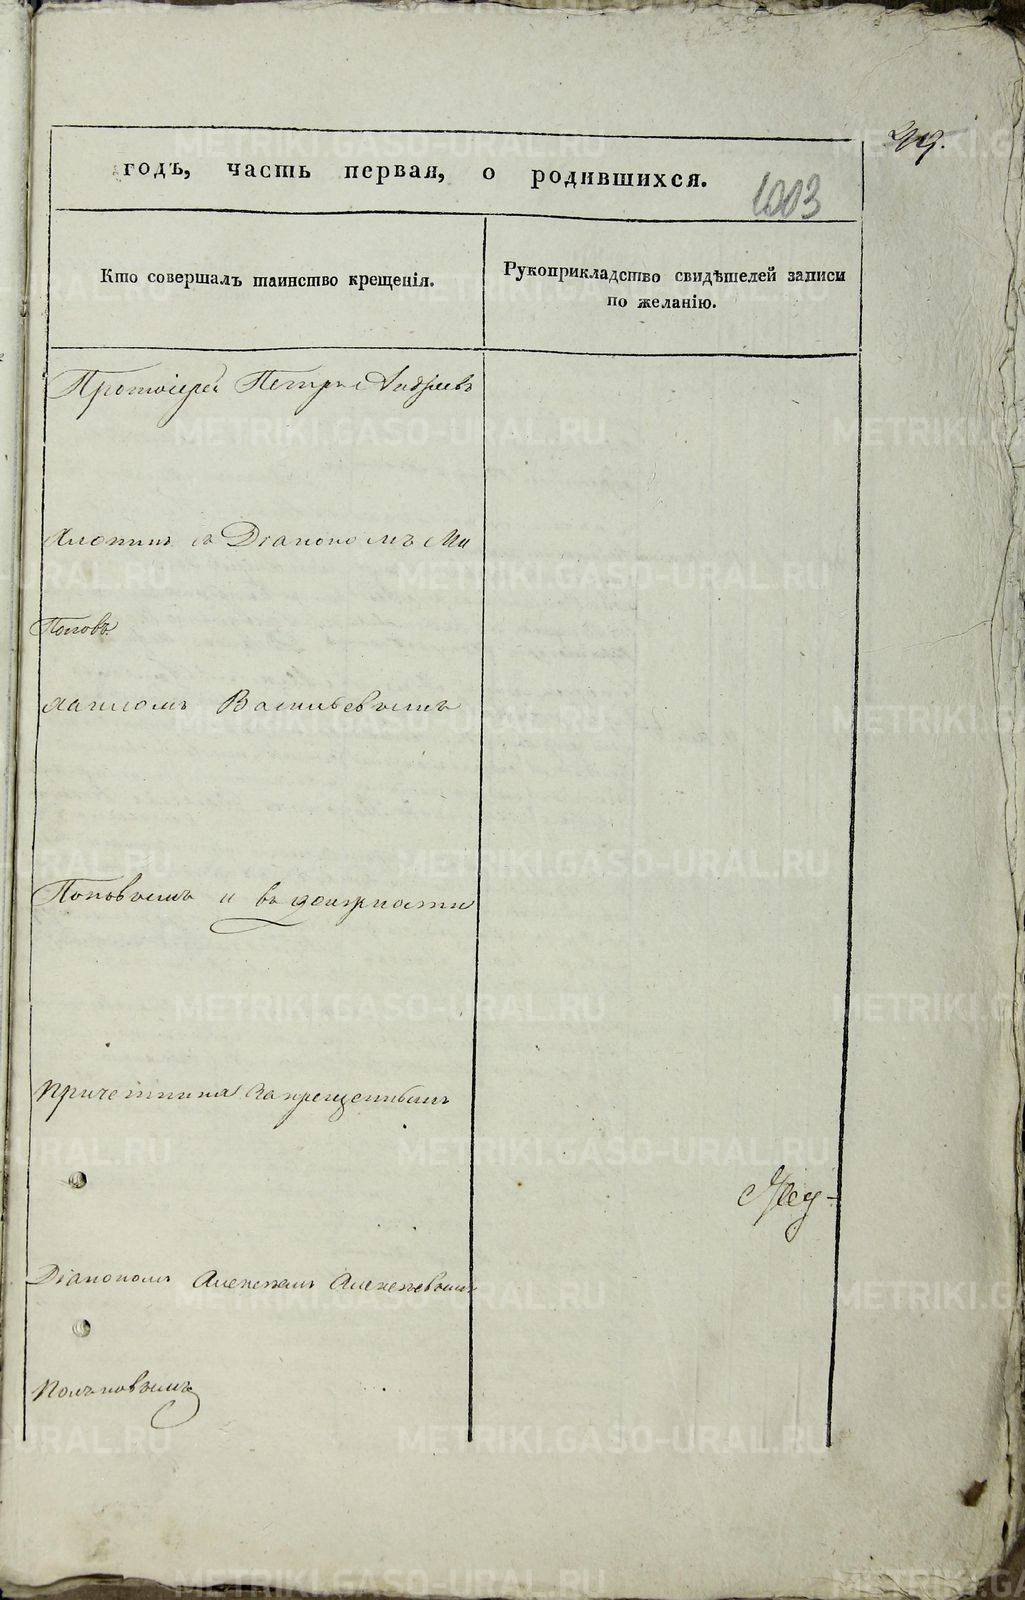 годъ, часть первая, о родившихся.
1003
Кто совершалъ таинство крещенія.
Рукоприкладство свидѣтелей записи
по желанію.
Протоіерей Петръ Андреевъ
съ Діакономъ Ми
Поповъ
хаиломъ Васильевымъ
Поповымъ и въ должности
Причетника запрещеннымъ
Діакономъ Алексѣемъ Алексѣевымъ
METRIKI.GASO-URAL.RU